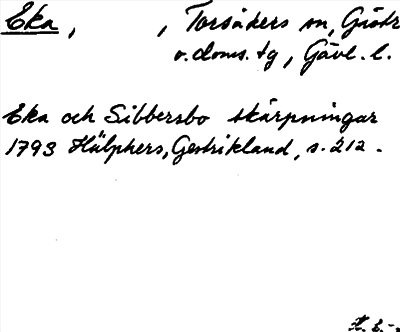 Eka, , Torsåkers sn, Gästr
v. doms. tg, Gävl. l.
Eka och Sibbersbo skärpningar
1793 Hülphers, Gestrikland, s. 212.